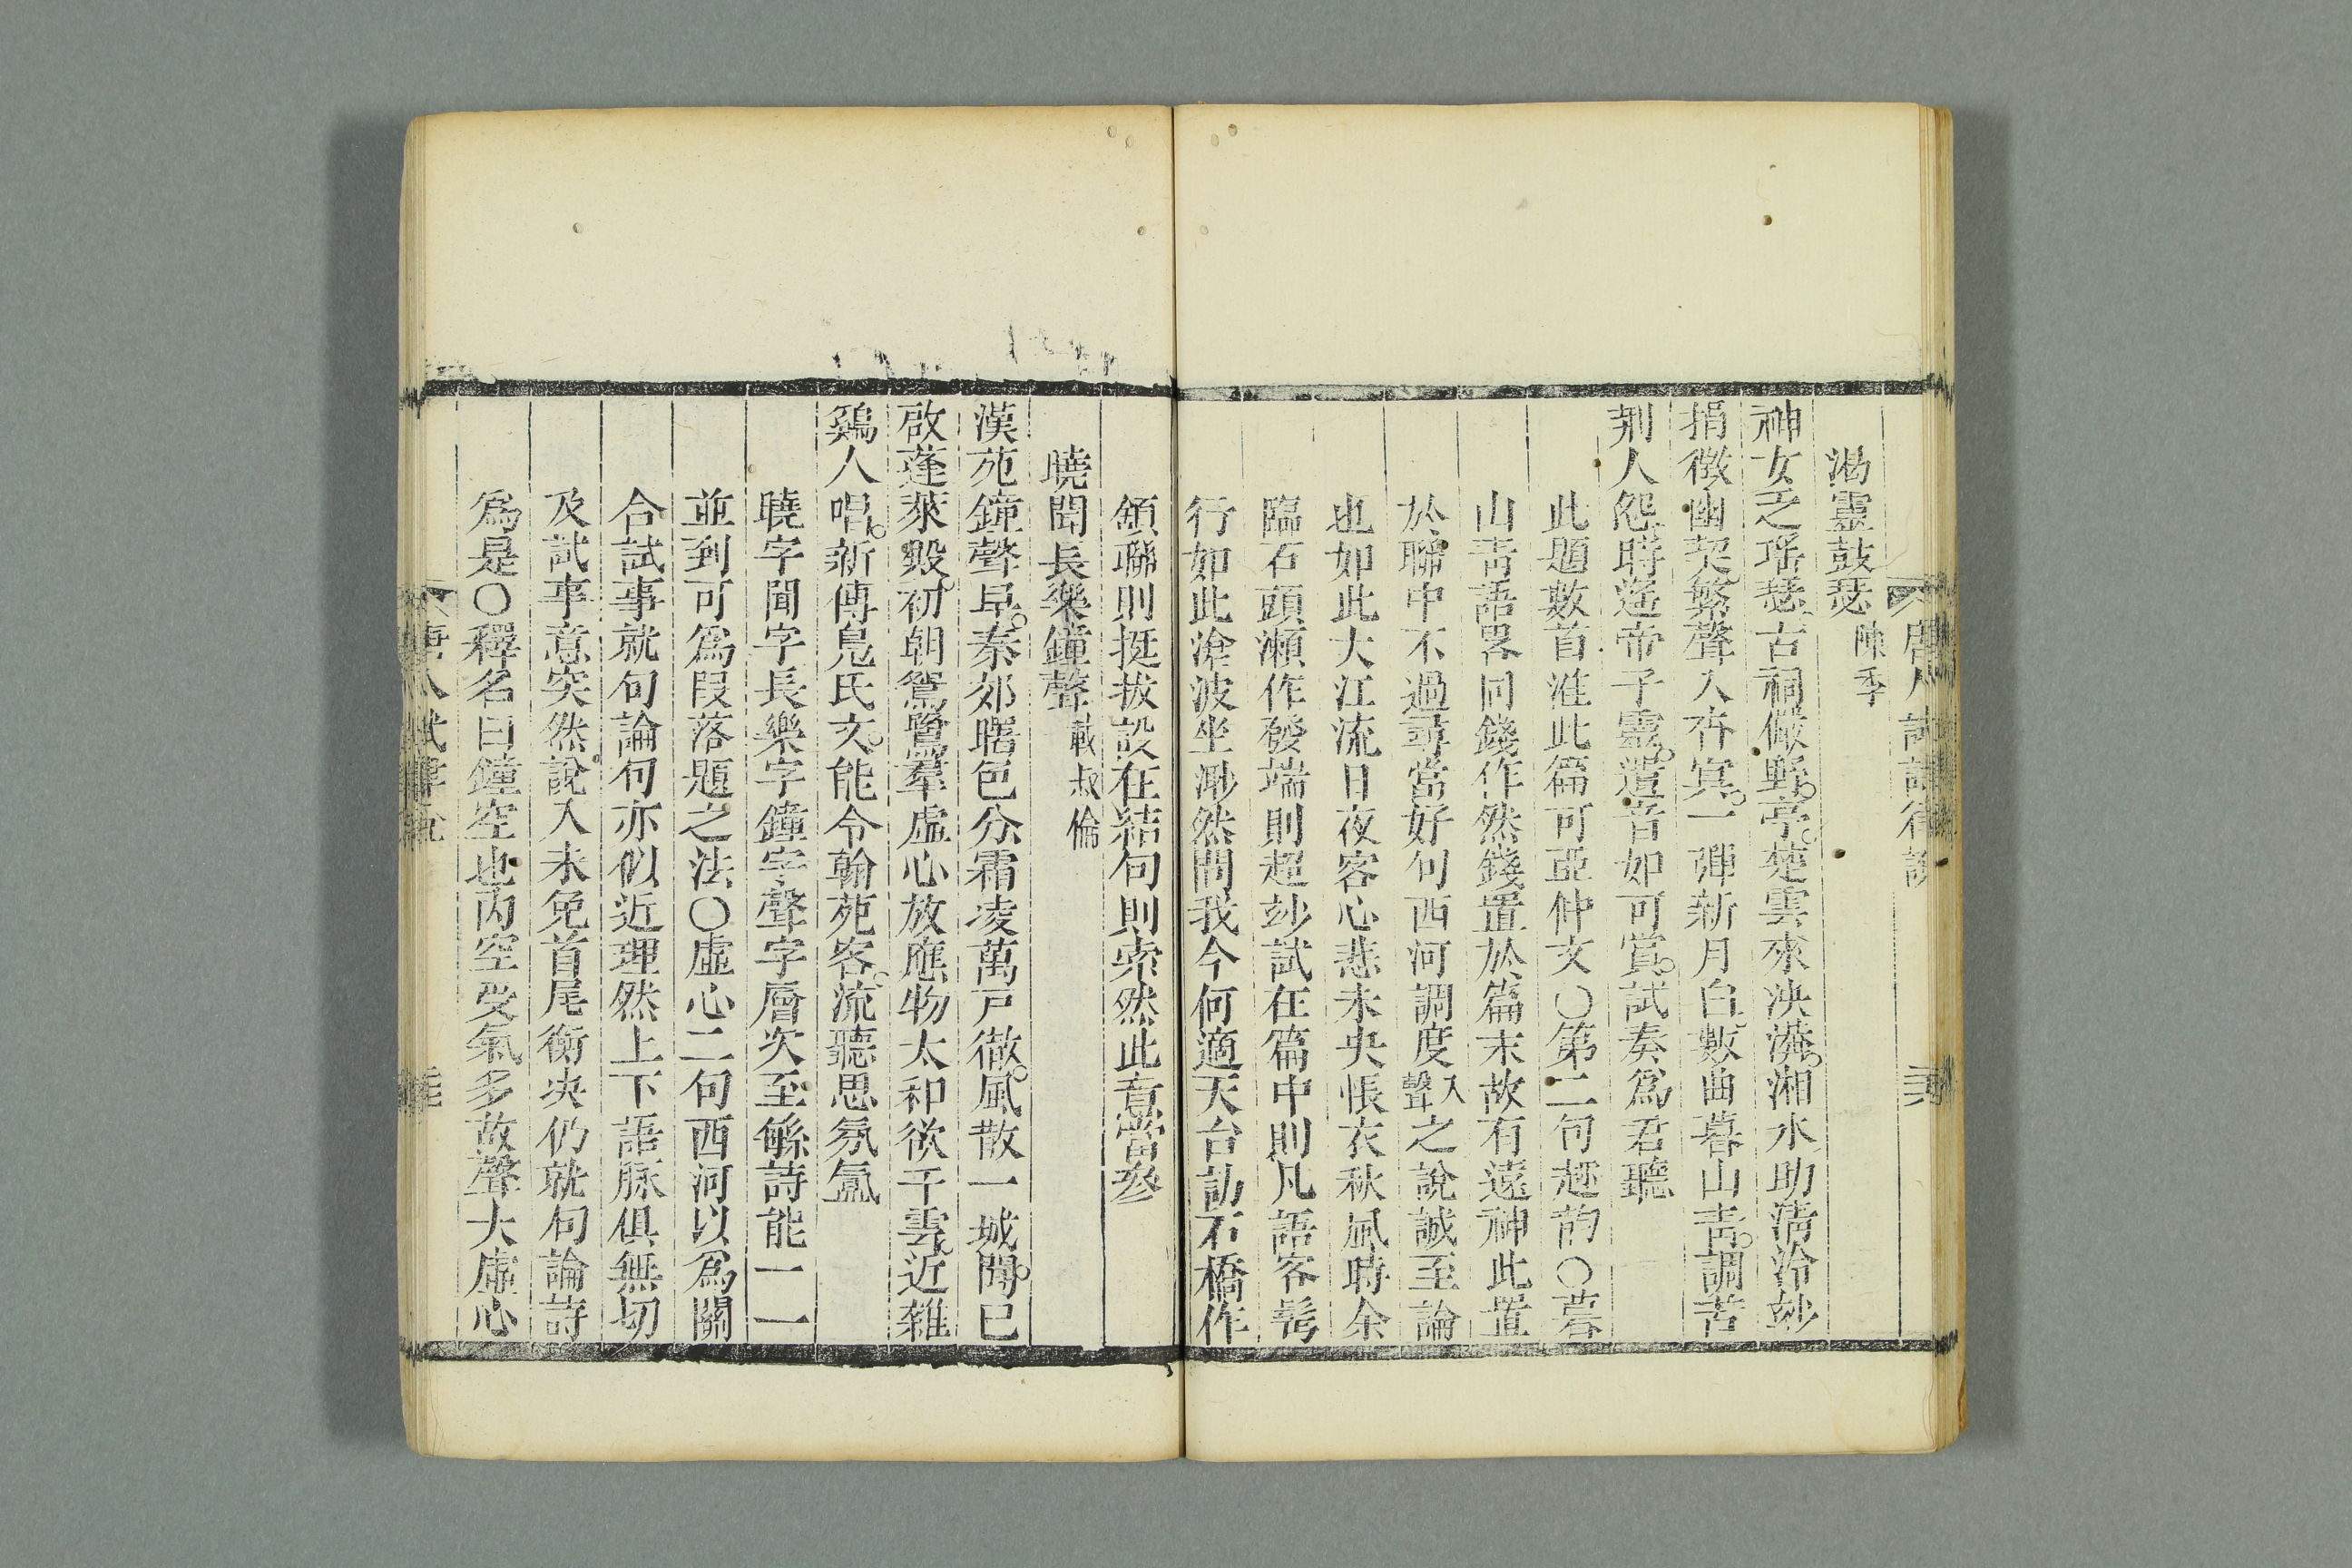 唐人試律說
湘靈鼓瑟 陳季
神女泛瑤瑟古祠儼野亭楚雲來泱漭湘水助清泠妙
捐徵幽契繁聲入杳冥一彈新月白數曲暮山靑調苦
荆人怨時遙帝子靈遺音如可賞試奏爲君聽
此題數首淮此篇可亞仲文〇第二句趂韵〇暮
山靑語畧同錢作然錢置於篇末故有遠神此置
於聯中不過尋當好句西河調度入聲之說誠至論
也如此大江流日夜客心悲未央悵衣秋風時余
臨石頭瀬作發端則超妙試在篇中則凡語客髩
行如此滄波坐渺然問我今何適天台訪石橋作
頷聯則挺拔設在結句則索然此意當參
曉聞長樂鐘聲 戴叔倫
漢苑鐘聲早秦郊曙色分霜凌萬戸徹風散一城聞已
啟蓬萊殿初朝鴛鷺羣虛心放應物太和欲干雲近雜
鷄人唱新傳鳧氏文能令翰苑客流聽思氛氳
曉字聞字長樂字鐘字聲字層次至緜詩能一一
並到可爲叚落題之法〇虛心二句西河以爲關
合試事就句論句亦似近理然上下語脉俱無切
及試事意突然說入未免首尾衡決仍就句論詩
爲是〇釋名曰鐘空也內空受氣多故聲大虛心
唐人試律說